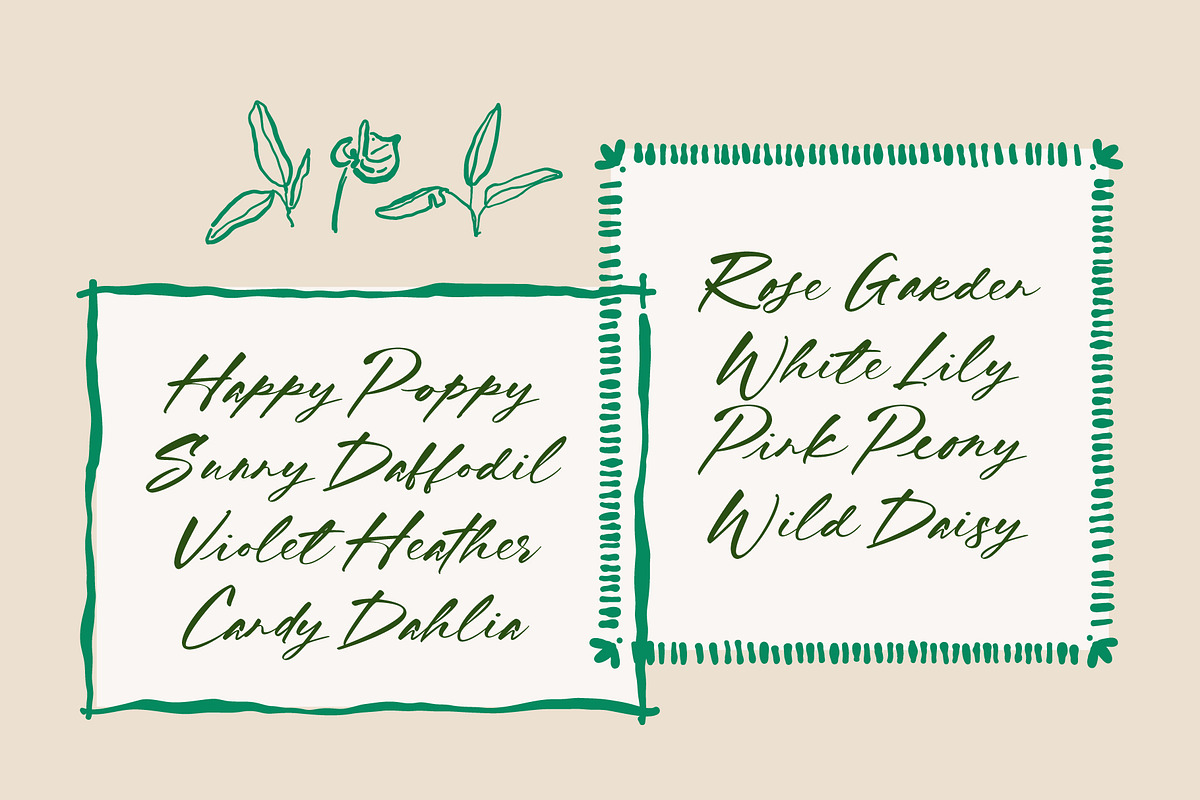 Happy Poppy
Sunny Daffodil
Violet Heather
Candy Dahlia
Rose Garden
White Lily
Pink Peony
Wild Daisy